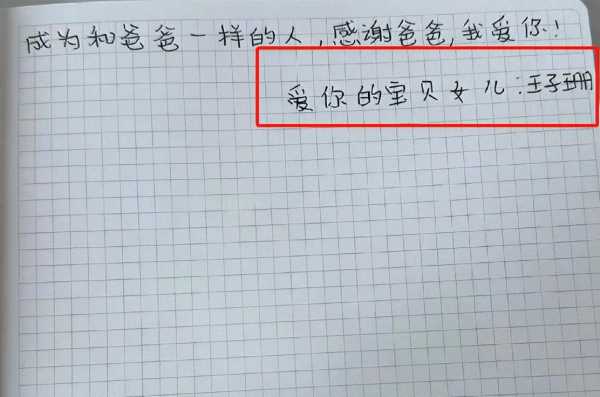 成为和爸爸一样的人,感谢爸爸,我爱你!
爱你的宝贝女儿:王子珊